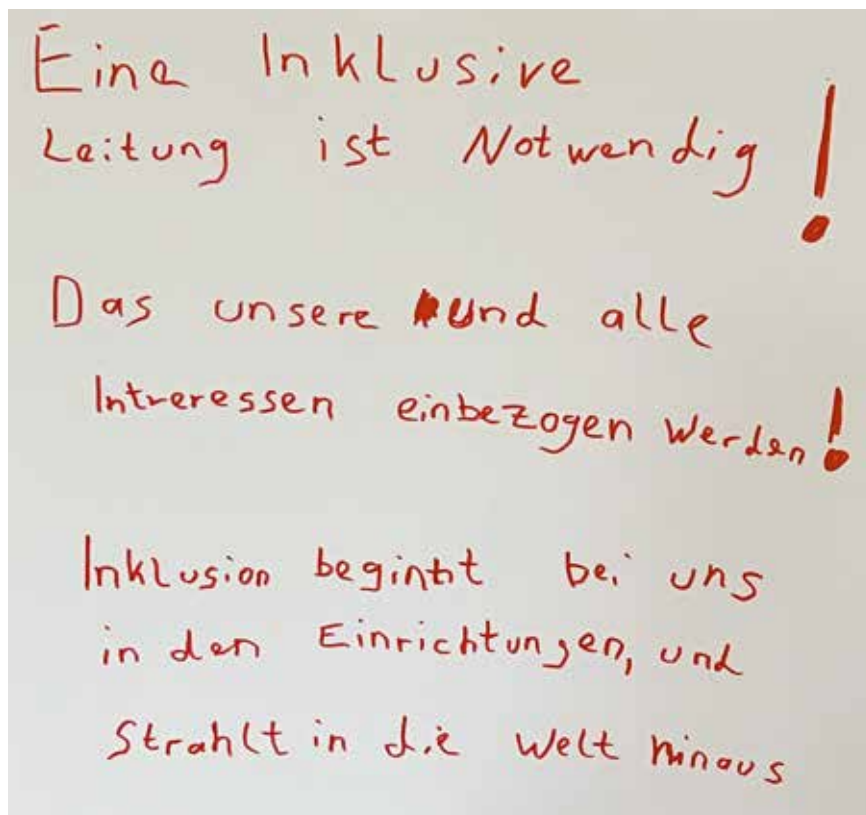 Eine Inklusive
Leitung ist Notwendig!
Das unsere und alle
Intreressen einbezogen werden!
Inklusion beginnt bei uns
in den Einrichtungen, und
Strahlt in die Welt hinaus